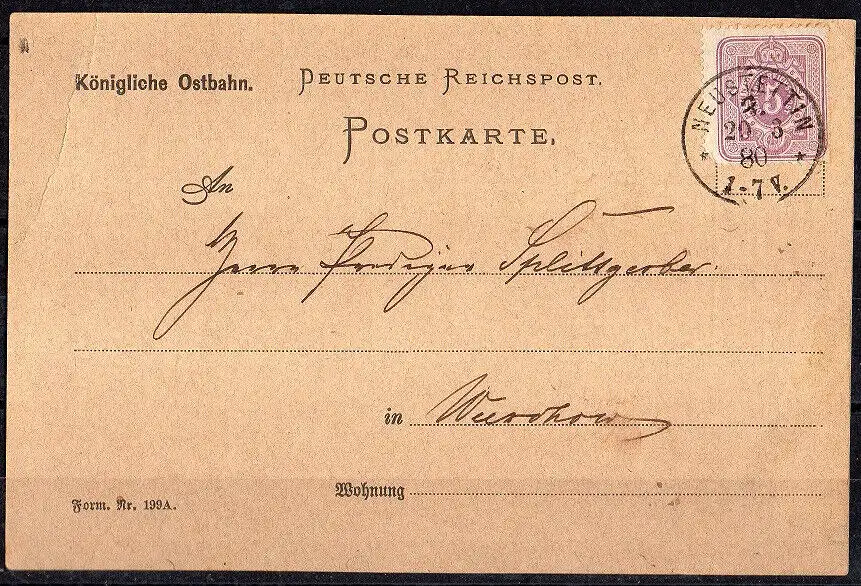 Königliche Ostbahn.
DEUTSCHE REICHSPOST.
POSTKARTE.
NEUSTETTIN
20 3
80
1-7 V.
5
An
Herrn Prediger Splittgerber.
in Wurchow
Wohnung
Form. Nr. 199A.